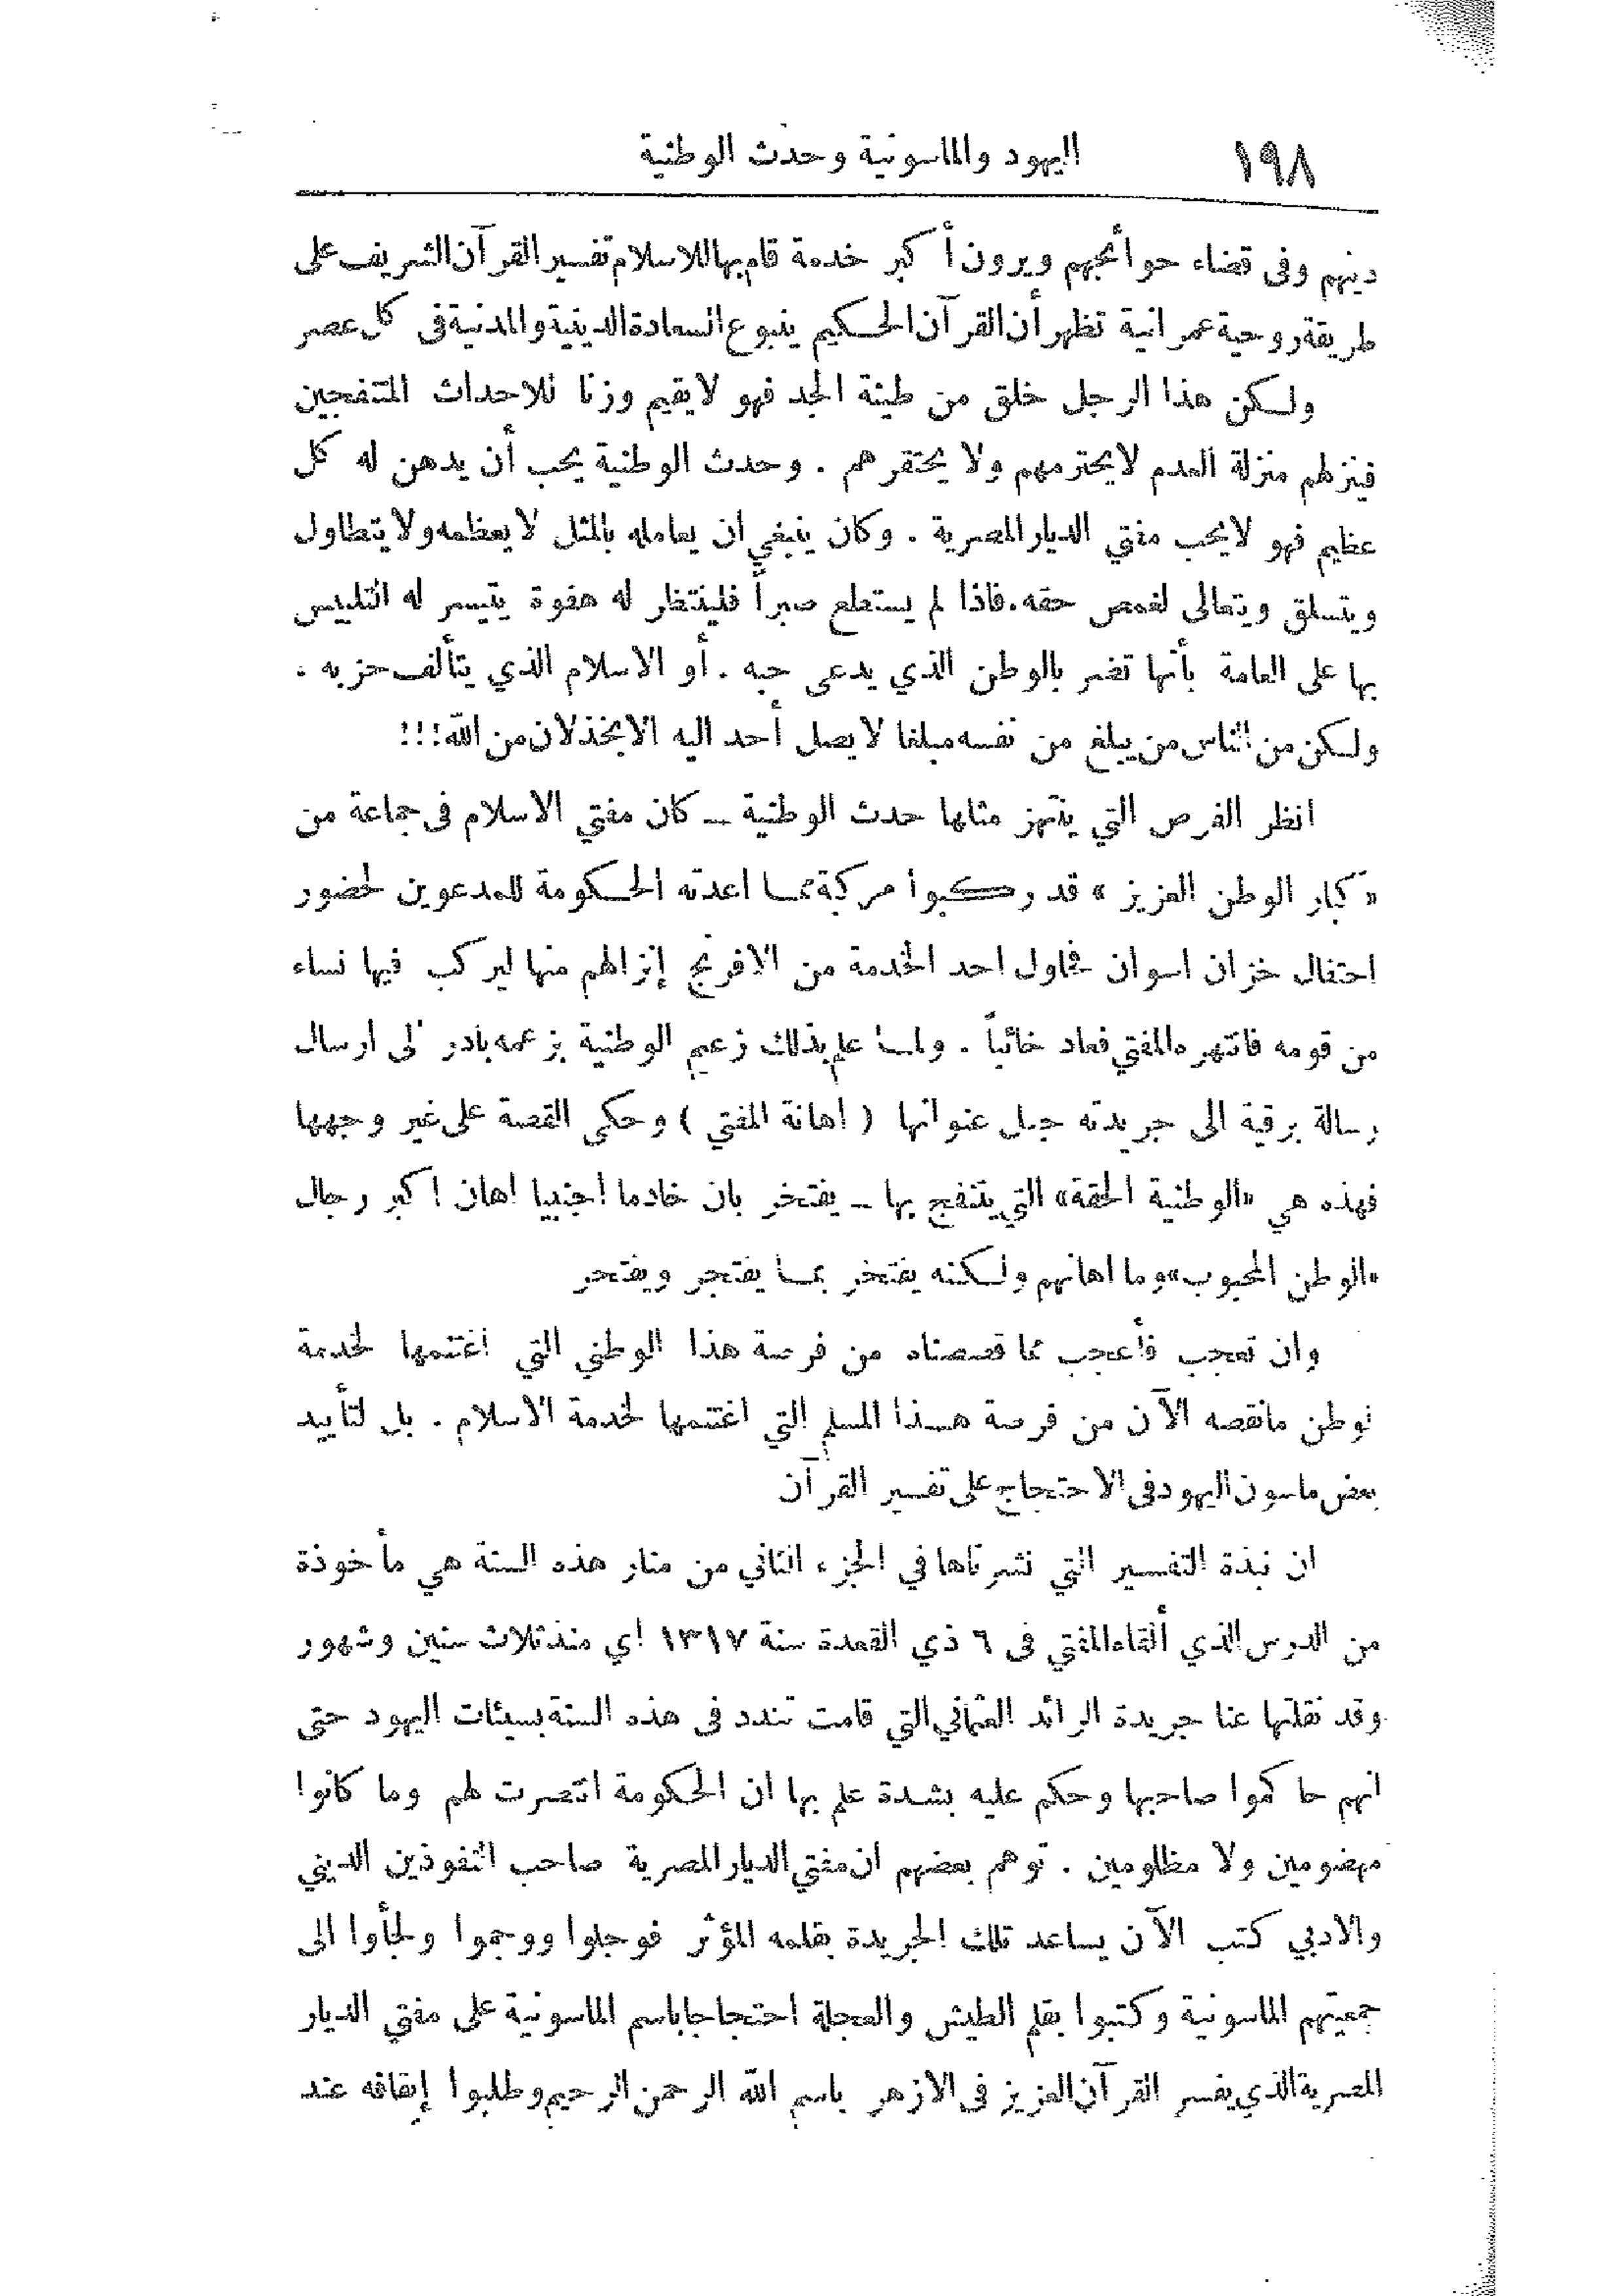 ١٩٨ اليهود والماسونية وحدث الوطنية
دينهم وفى قضاء حوائجهم ويرون أكبر خدمة قام بها للاسلام تفسير القرآن الشريف على
طريقة روحية عمرانية تظهر أن القرآن الحكيم ينبوع السعادة الدينية والمدنية فى كل عصر
ولكن هذا الرجل خلق من طينة الجد فهو لا يقيم وزنا للاحداث المتنفجين
فينزلهم منزلة العدم لا يحترمهم ولا يحتقرهم . وحدث الوطنية يحب أن يدهن له كل
عظيم فهو لا يحب مفتي الديار المصرية . وكان ينبغي ان يعامله بالمثل لا يعظمه ولا يتطاول
ويتسلق ويتعالى لغمص حقه . فاذا لم يستطع صبراً فلينتظر له هفوة يتيسر له التلبيس
بها على العامة بأنها تضر بالوطن الذي يدعى حبه . أو الاسلام الذي يتألف حزبه .
ولكن من الناس من يبلغ من نفسه مبلغا لا يصل أحد اليه الا بخذلان من الله!!!
انظر الفرص التي ينتهز مثلها حدث الوطنية ــ كان مفتي الاسلام فى جماعة من
« كبار الوطن العزيز » قد ركبوا مركبة مما اعدته الحكومة للمدعوين لحضور
احتفال خزان اسوان فحاول احد الخدمة من الافرنج إنزالهم منها ليركب فيها نساء
من قومه فانتهره المفتي فعاد خائباً . ولما علم بذلك زعيم الوطنية بزعمه بادر الى ارسال
رسالة برقية الى جريدته جعل عنوانها ( اهانة المفتي ) وحكى القصة على غير وجهها
فهذه هي «الوطنية الحقة» التي يتنفج بها ــ يفتخر بان خادما اجنبيا اهان اكبر رجال
«الوطن المحبوب» وما اهانهم ولكنه يفتخر بما يفتجر ويفتحر
وان تعجب فأعجب مما قصصناه من فرصة هذا الوطني التي اغتنمها لخدمة
الوطن مانقصه الآن من فرصة هذا المسلم التي اغتنمها لخدمة الاسلام . بل لتأييد
بعض ماسون اليهود فى الاحتجاج على تفسير القرآن
ان نبذة التفسير التي نشرناها في الجزء الثاني من منار هذه السنة هي مأخوذة
من الدرس الذي ألقاه المفتي فى ٦ ذي القعدة سنة ١٣١٧ اي منذ ثلاث سنين وشهور
وقد نقلتها عنا جريدة الرائد العثماني التي قامت تندد فى هذه السنة بسيئات اليهود حتى
انهم حاكموا صاحبها وحكم عليه بشدة علم بها ان الحكومة انتصرت لهم وما كانوا
مهضومين ولا مظلومين . توهم بعضهم ان مفتي الديار المصرية صاحب النفوذين الديني
والادبي كتب الآن يساعد تلك الجريدة بقلمه المؤثر فوجلوا ووجموا ولجأوا الى
جمعيتهم الماسونية وكتبوا بقلم الطيش والعجلة احتجاجا باسم الماسونية على مفتي الديار
المصرية الذي يفسر القرآن العزيز فى الازهر باسم الله الرحمن الرحيم وطلبوا إيقافه عند